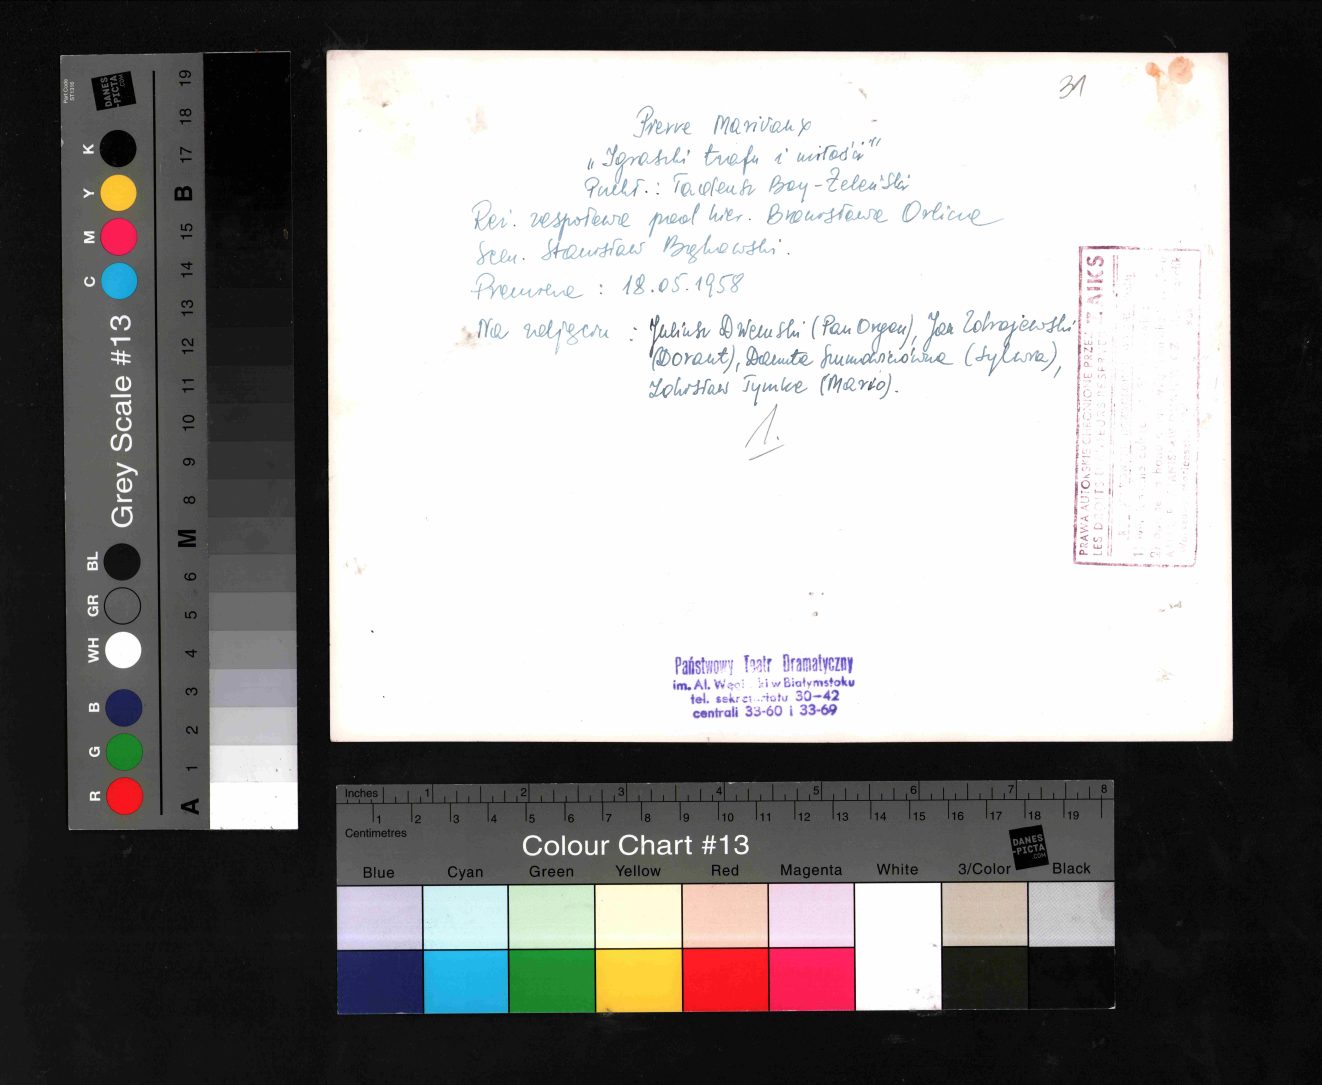 31
Pierre Marivaux
„Igraszki trafu i miłości"
Przekł.: Tadeusz Boy-Żeleński
Reż. zespołowa pod kier. Bronisława Orlicza
Scen. Stanisław Bąkowski.
Premiera : 18.05.1958
Na zdjęciu : Juliusz (Pan Orgon), Jan Zdrojewski
(Dorant), Danuta (Sylwia),
Zdzisław Tymke (Mario).
1.
PRAWA AUTORSKIE CHRONIONE PRZEZ ZAIKS
LES DROITS
Państwowy Teatr Dramatyczny
im. Al. w Białymstoku
tel. sekretariatu 30-42
centrali 33-60 i 33-69
Grey Scale #13
DANES
-PICTA
.COM
K Y M C
BL GR WH
B G R
A 1 2 3 4 5 6 M 8 9 10 11 12 13 14 15 B 17 18 19
Inches 1 2 3 4 5 6 7 8
1 2 3 4 5 6 7 8 9 10 11 12 13 14 15 16 17 18 19
Centimetres
Colour Chart #13
DANES
-PICTA
.COM
Blue Cyan Green Yellow Red Magenta White 3/Color Black